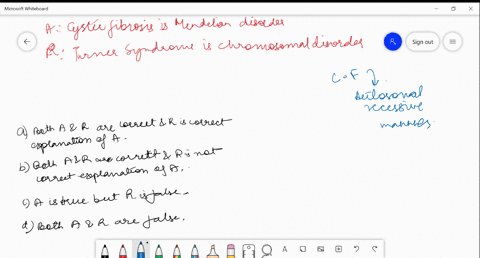 Microsoft Whiteboard
Sign out
A: Cystic fibrosis is Mendelian disorder
R: Turner Syndrome is chromosomal disorder
C.F
autosomal
recessive
manner.
a) Both A & R are correct & R is correct
explanation of A.
b) Both A & R are correct & R is not
correct explanation of A.
c) A is true but R is false.
d) Both A & R are false.